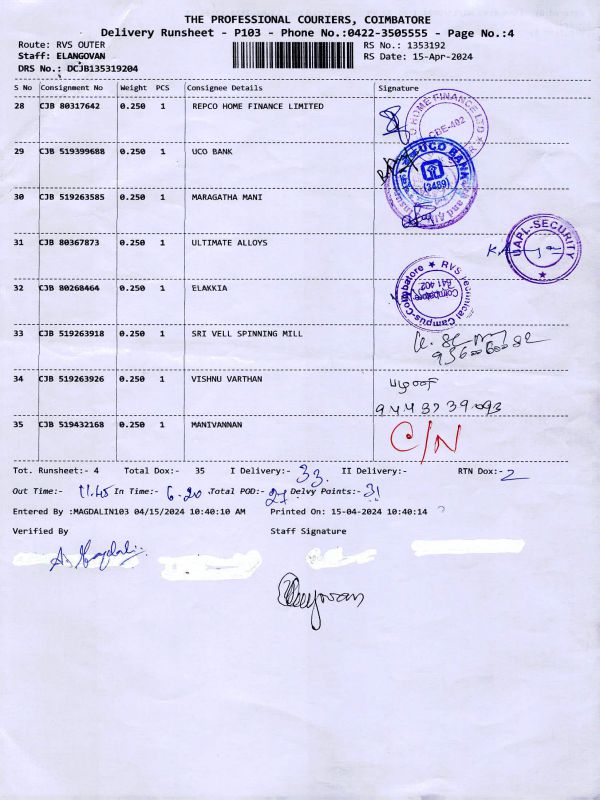 THE PROFESSIONAL COURIERS, COIMBATORE
Delivery Runsheet - P103 - Phone No.:0422-3505555 - Page No.:4
Route: RVS OUTER RS No.: 1353192
Staff: ELANGOVAN RS Date: 15-Apr-2024
DRS No.: DCJB135319204
S No Consignment No Weight PCS Consignee Details Signature
28 CJB 80317642 0.250 1 REPCO HOME FINANCE LIMITED
HOME FINANCE LTD
CBE-402
29 CJB 519399688 0.250 1 UCO BANK
UCO BANK
(3489)
30 CJB 519263585 0.250 1 MARAGATHA MANI
31 CJB 80367873 0.250 1 ULTIMATE ALLOYS
UAPL-SECURITY
32 CJB 80268464 0.250 1 ELAKKIA
RVS Technical Campus-Coimbatore
Coimbatore
641 402
33 CJB 519263918 0.250 1 SRI VELL SPINNING MILL
34 CJB 519263926 0.250 1 VISHNU VARTHAN
35 CJB 519432168 0.250 1 MANIVANNAN
C/N
Tot. Runsheet:- 4 Total Dox:- 35 I Delivery:- 33 II Delivery:- RTN Dox:- 2
Out Time:- 11.45 In Time:- 6.20 Total POD:- 27 Delvy Points:- 31
Entered By :MAGDALIN103 04/15/2024 10:40:10 AM Printed On: 15-04-2024 10:40:14
Verified By Staff Signature